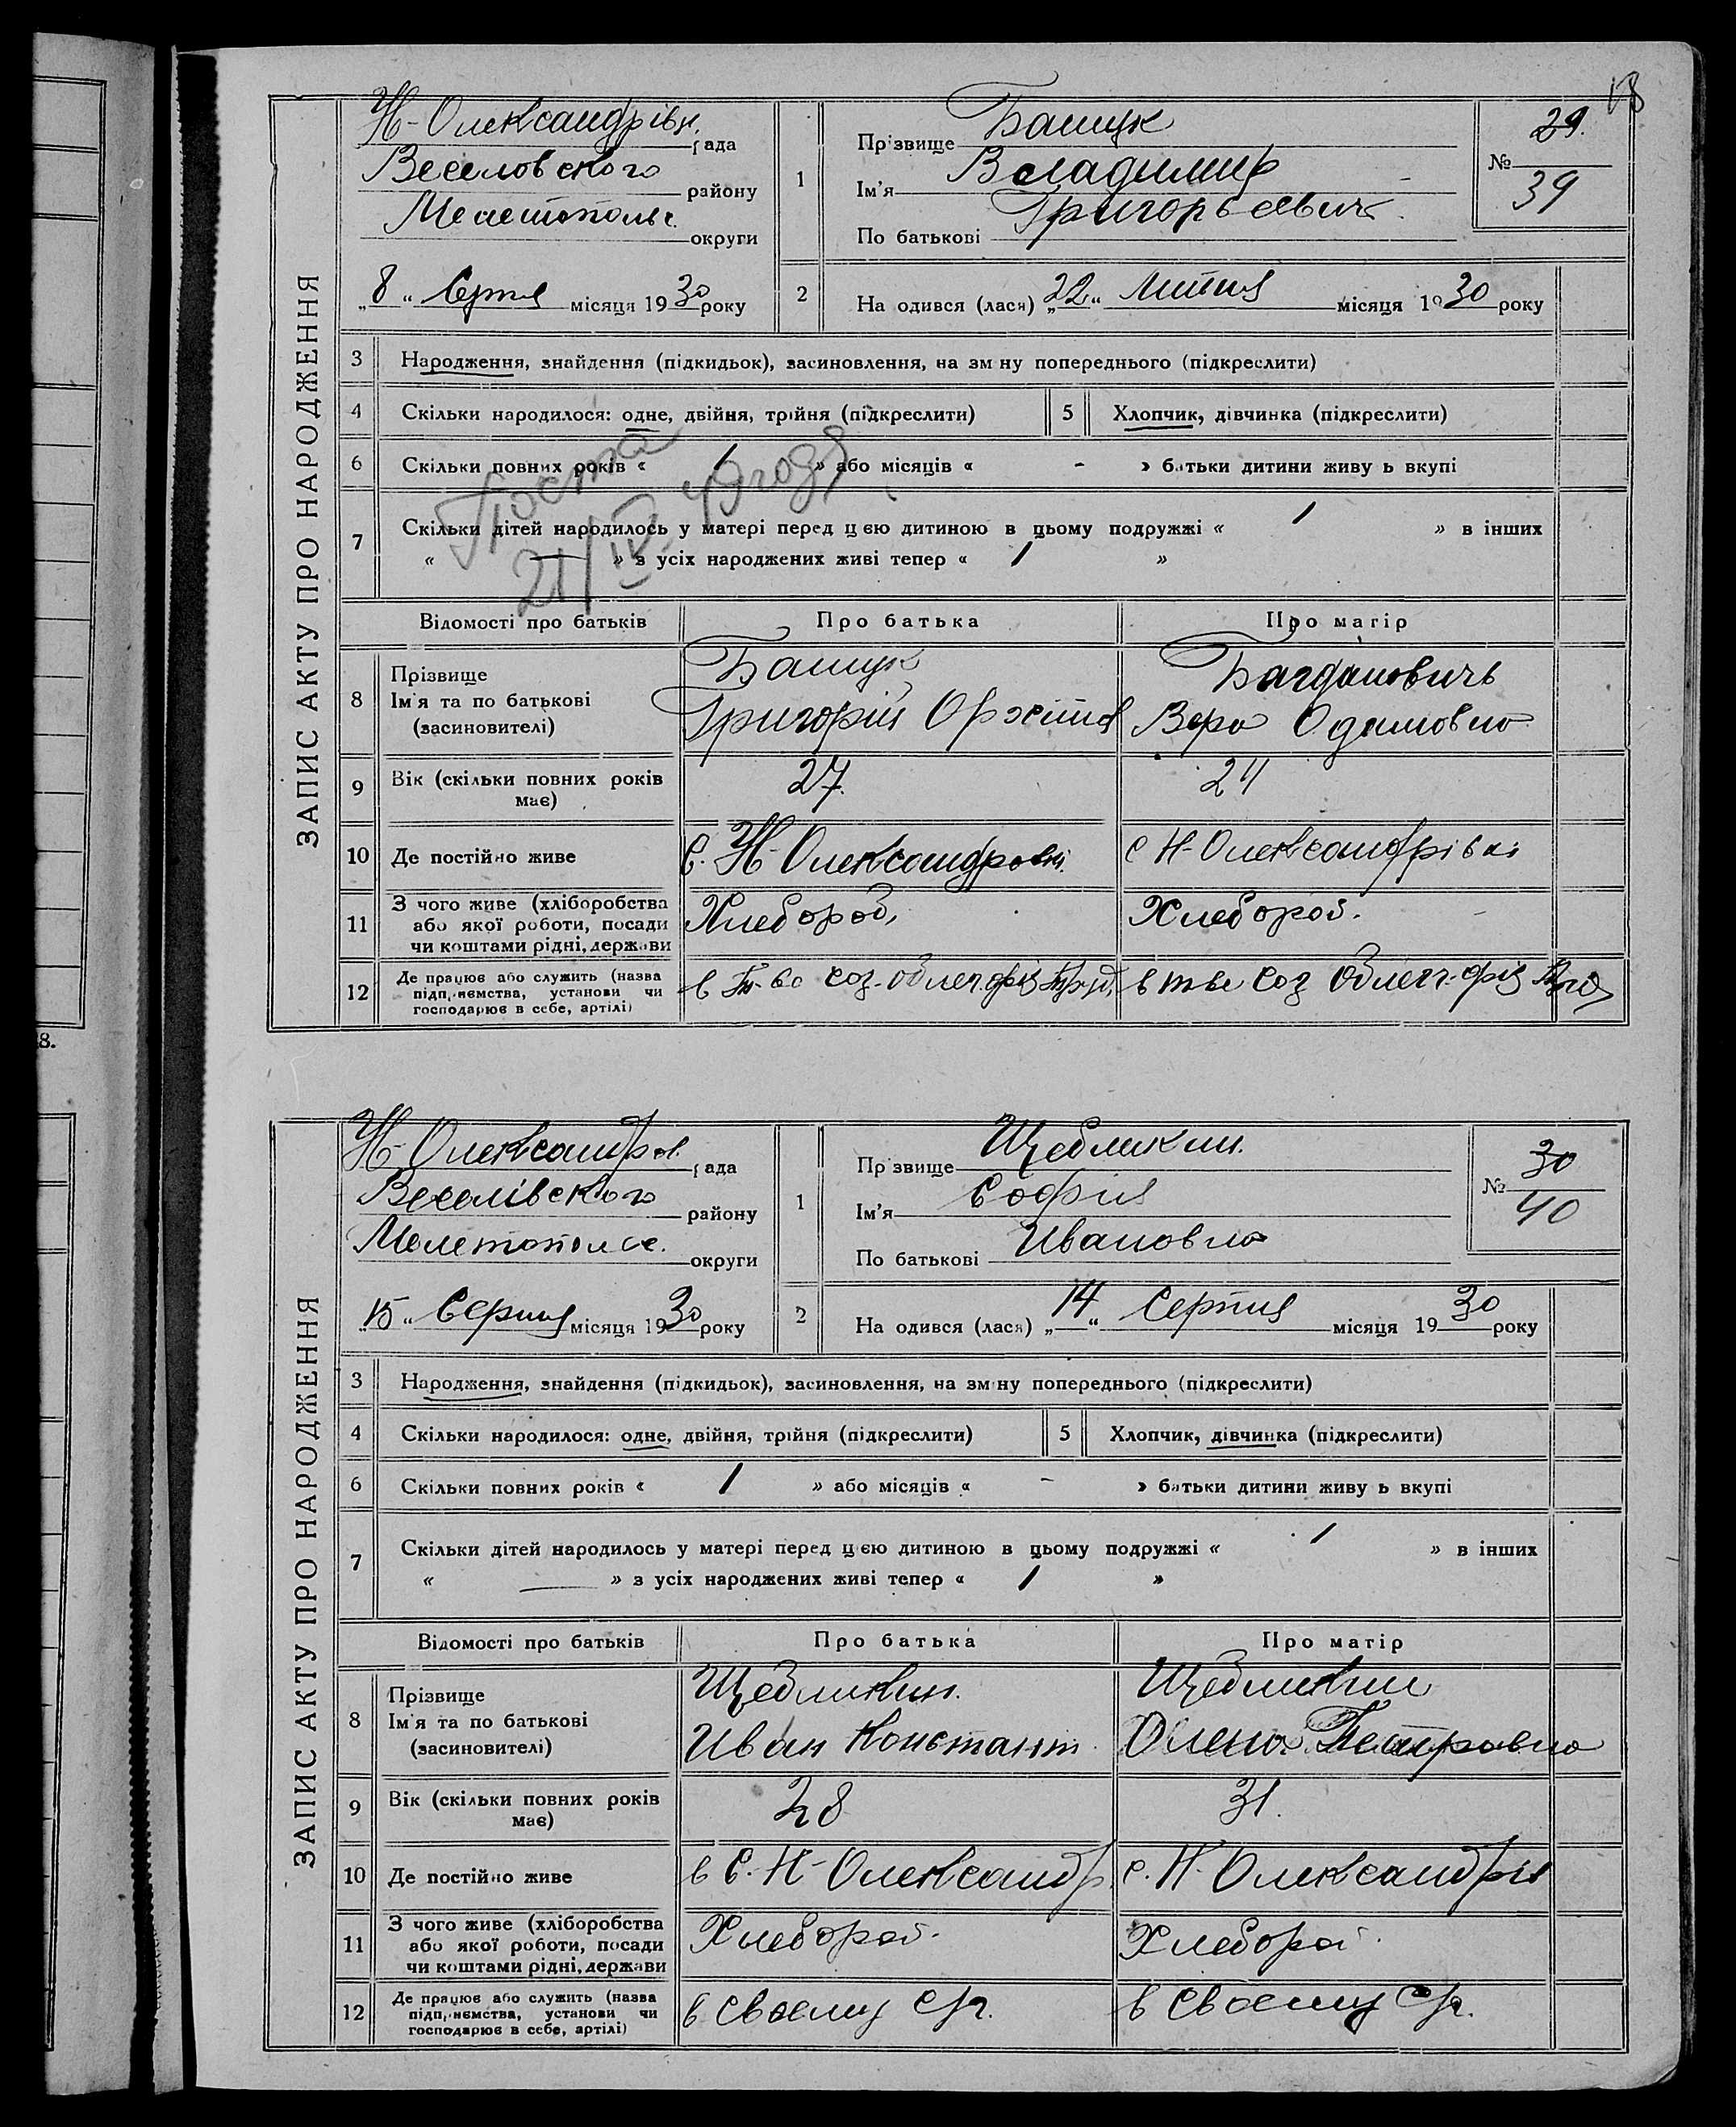 8.
ЗАПИС АКТУ ПРО НАРОДЖЕННЯ
Н-Олександрівк. рада
Веселовского району
Мелетопольс. округи
„8“ Серпня місяця 1930 року
1
Прізвище Башук
Ім'я Владимир
По батькові Григорьевич
№ 29.
39
2
На одився (лася) „22“ Липня місяця 1930 року
3 Народження, знайдення (підкидьок), засиновлення, на зм ну попереднього (підкреслити)
4 Скільки народилося: одне, двійня, трійня (підкреслити)
5 Хлопчик, дівчинка (підкреслити)
6 Скільки повних років « 1 » або місяців « - » батьки дитини живу ь вкупі
7 Скільки дітей народилось у матері перед цією дитиною в цьому подружжі « 1 » в інших
« — » з усіх народжених живі тепер « 1 »
21/IV 49 года
Відомості про батьків Про батька Про матір
8 Прізвище
Ім'я та по батькові
(засиновителі)
Башук
Григорій
Багдановичь
Вера Одамовна
9 Вік (скільки повних років
має)
27. 24
10 Де постійно живе с. Н-Олександровкі. с Н-Олександрівкі
11 З чого живе (хліборобства
або якої роботи, посади
чи коштами рідні, держави
Хлебороб, Хлебороб.
12 Де працює або служить (назва
підприємства, установи чи
господарює в себе, артілі)
ЗАПИС АКТУ ПРО НАРОДЖЕННЯ
Н-Олександров. рада
Веселівского району
Мелетопольс. округи
„15“ Серпня місяця 1930 року
1
Прізвище Щебликин.
Ім'я София
По батькові Ивановна
№ 30
40
2
На одився (лася) „14“ Серпня місяця 1930 року
3 Народження, знайдення (підкидьок), засиновлення, на зм ну попереднього (підкреслити)
4 Скільки народилося: одне, двійня, трійня (підкреслити)
5 Хлопчик, дівчинка (підкреслити)
6 Скільки повних років « 1 » або місяців « - » батьки дитини живу ь вкупі
7 Скільки дітей народилось у матері перед цією дитиною в цьому подружжі « 1 » в інших
« — » з усіх народжених живі тепер « 1 »
Відомості про батьків Про батька Про матір
8 Прізвище
Ім'я та по батькові
(засиновителі)
Щебликин.
Иван Констант.
Щебликин
Олена Петровна
9 Вік (скільки повних років
має)
28 31.
10 Де постійно живе в с. Н-Олександр. с. Н-Олександрів
11 З чого живе (хліборобства
або якої роботи, посади
чи коштами рідні, держави
Хлебороб. Хлебороб.
12 Де працює або служить (назва
підприємства, установи чи
господарює в себе, артілі)
в своему с/г. в своему с/г.